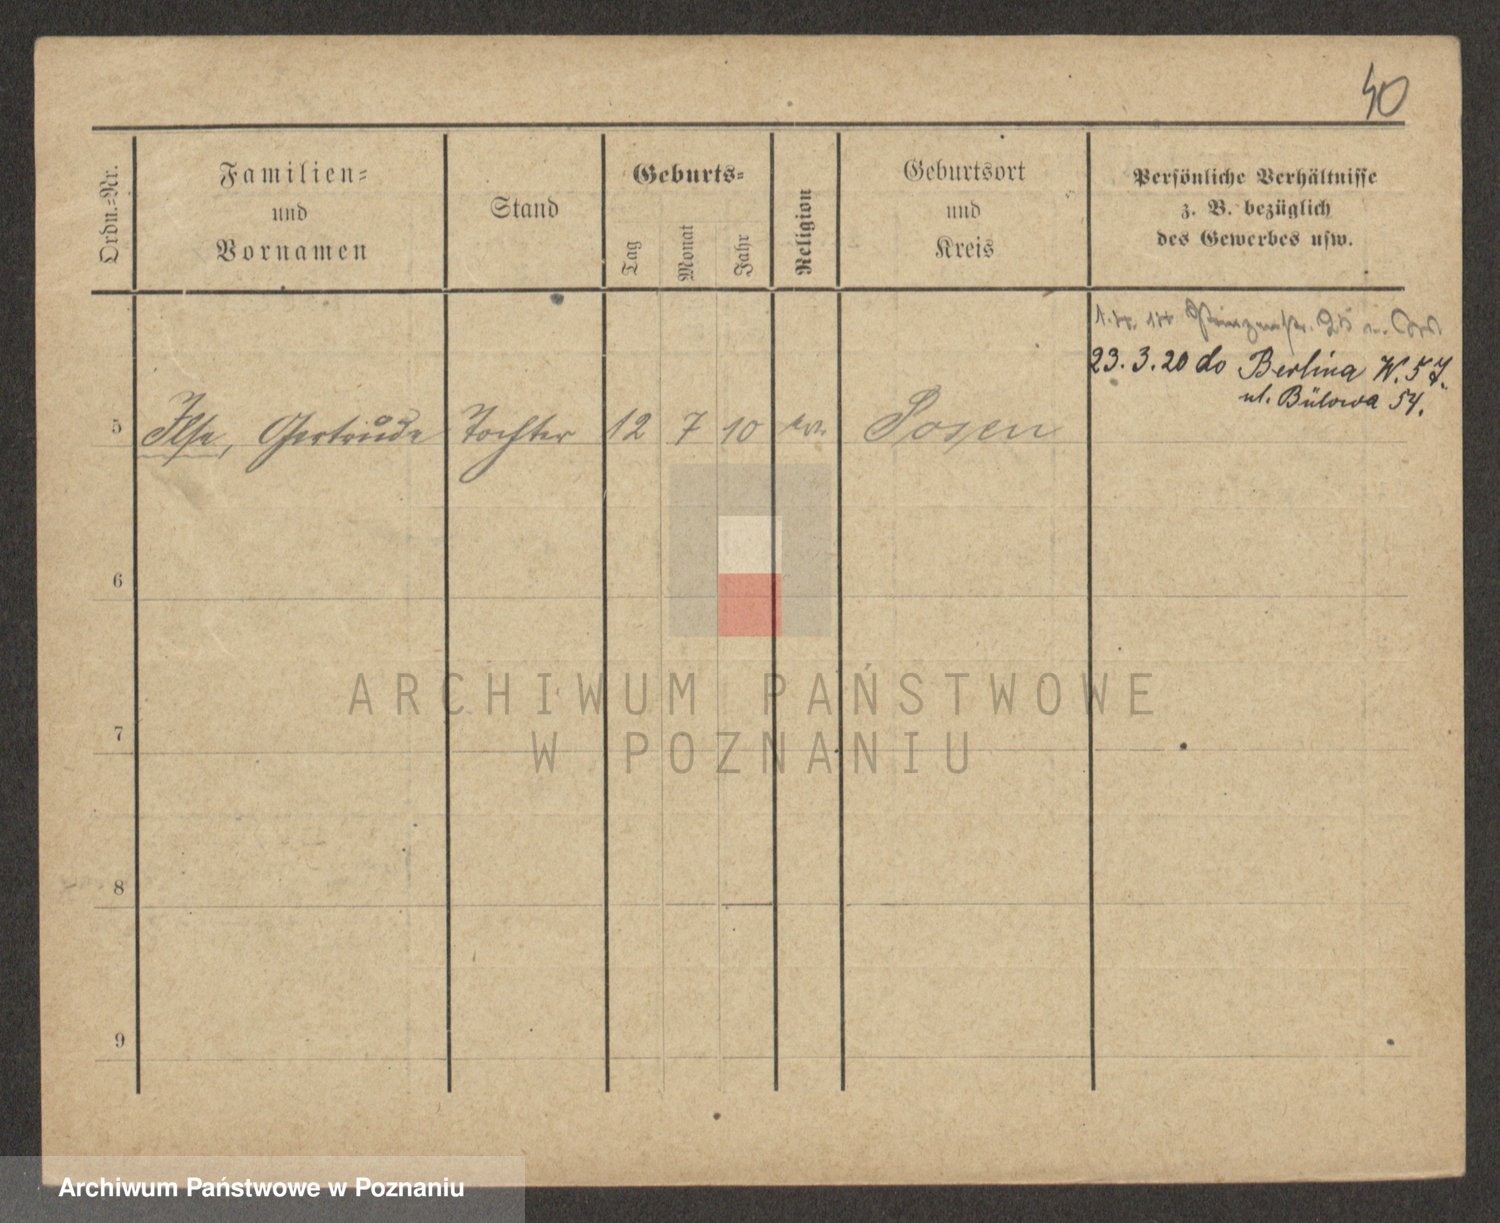 40
Ordn.-Nr.
Familien-
und
Vornamen
Stand
Geburts-
Tag
Monat
Jahr
Religion
Geburtsort
und
Kreis
Persönliche Verhältnisse
z. B. bezüglich
des Gewerbes usw.
25
23.3.20 do Berlina W.57.
ul. Bülowa 54.
5 Ilse, Gertrude Tochter 12 7 10 ev. Posen
6
7
8
9
ARCHIWUM PAŃSTWOWE
W POZNANIU
Archiwum Państwowe w Poznaniu